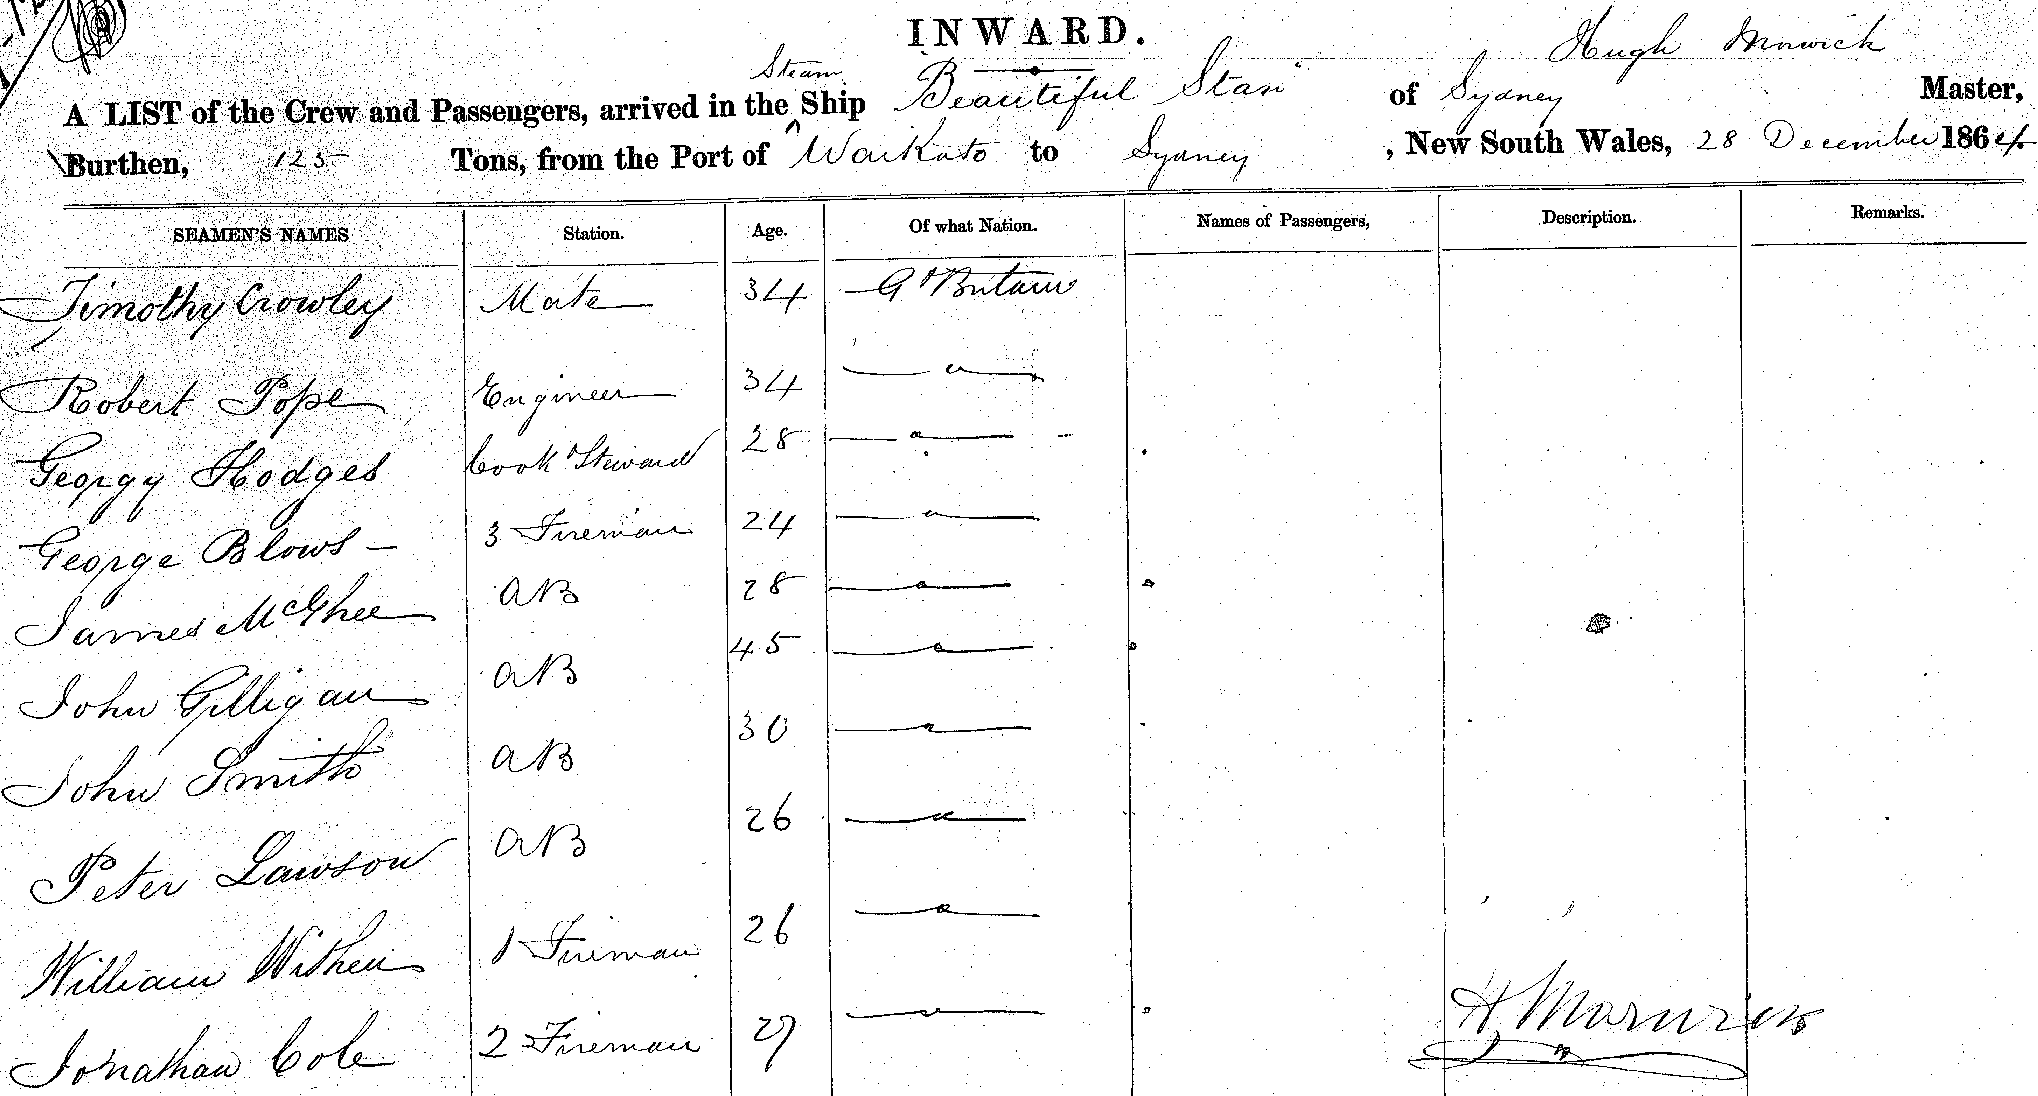 INWARD.
Hugh Morwick
A LIST of the Crew and Passengers, arrived in the Steam Ship Beautiful Star of Sydney Master,
Burthen, 125 Tons, from the Port of Waikato to Sydney, New South Wales, 28 December 1864
SEAMEN'S NAMES Station. Age. Of what Nation. Names of Passengers, Description. Remarks.
Timothy Crowley Mate 34 Gt Britain
Robert Pope Engineer 34 "
Georgy Hodges Cook & Steward 28 "
George Blows 3 Fireman 24 "
James McGhee AB 28 "
John Gilligan AB 45 "
John Smith AB 30 "
Peter Lawson AB 26 "
William 1 Fireman 26 "
Jonathan Cole 2 Fireman 27 "
H Morwick